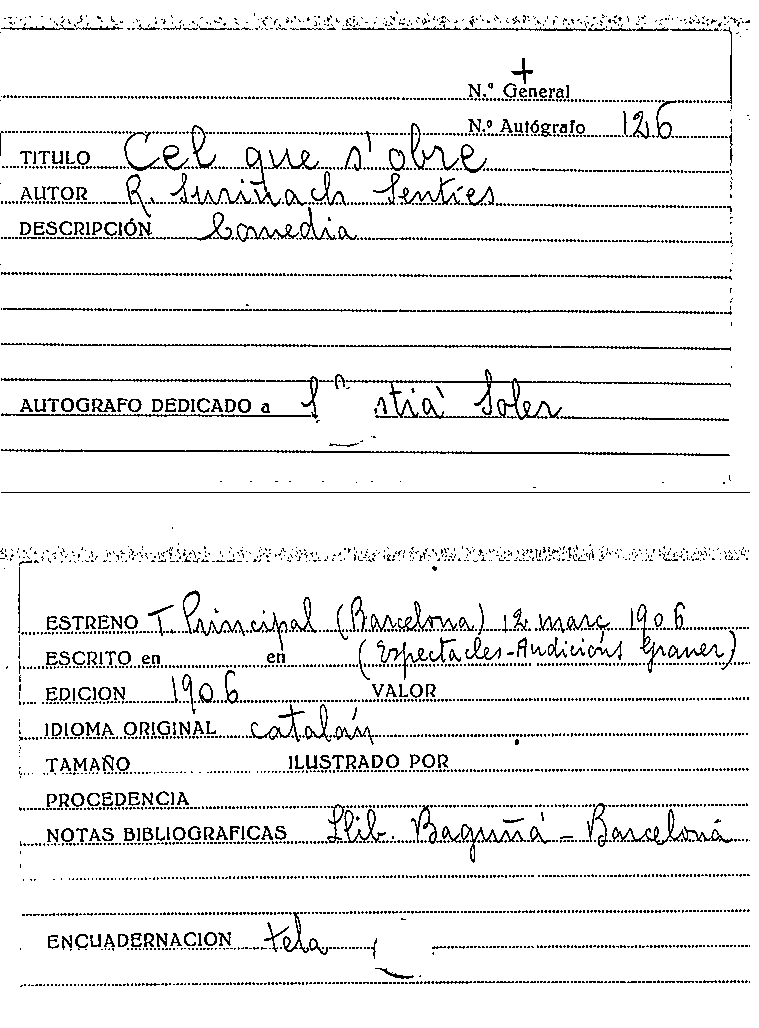 +
N.º General
N.º Autógrafo 126
TITULO Cel que s'obre
AUTOR R. Suriñach Senties
DESCRIPCIÓN Comedia
AUTOGRAFO DEDICADO a Soler
ESTRENO T. Principal (Barcelona) 12 març 1906
ESCRITO en en (Espectacles-Audicions Graner)
EDICION 1906 VALOR
IDIOMA ORIGINAL catalán
TAMAÑO ILUSTRADO POR
PROCEDENCIA
NOTAS BIBLIOGRAFICAS Llib. Baguñá - Barcelona
ENCUADERNACION tela